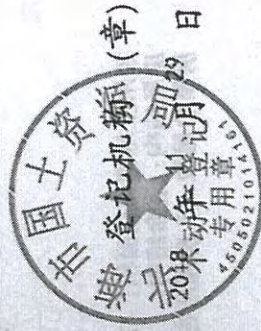 登记机构（章）
2018年11月29日
市国土资
不动 登记
专用章
4505021014161